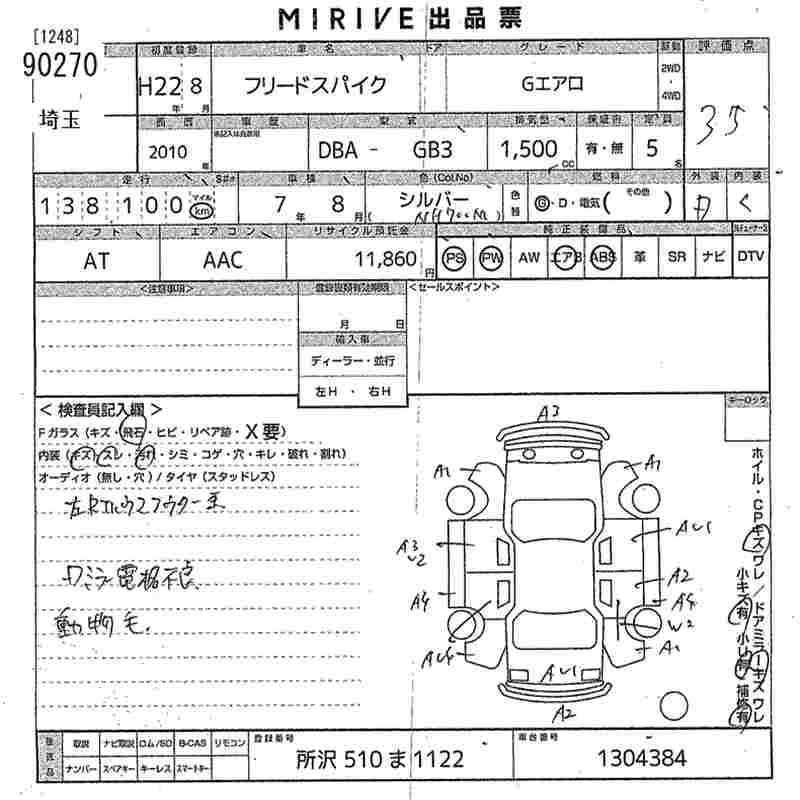 MIRIVE 出品票
[1248]
90270
埼玉
初度登録 車名 ドア グレード 駆動 評価点
H22 8 フリードスパイク Gエアロ 2WD・4WD
年 月
35
西暦 車歴 型式 排気量 保証書 定員
承記入は自家用
2010 年 DBA - GB3 1,500 CC 有・無 5 名
走行 S#* 車検 色(Col.No) 燃料 外装 内装
138100 マイル km 7年 8月 シルバー ( NH700M ) 色替 G・D・電気( その他 ) D C
シフト エアコン リサイクル預託金 純正装備品
AT AAC 11,860 円 PS PW AW エアB ABS 革 SR ナビ DTV
<注意事項> 登録書類有効期限 <セールスポイント>
月 日
輸入車
ディーラー・並行
左H ・ 右H
キーロック
< 検査員記入欄 >
Fガラス(キズ・飛石・ヒビ・リペア跡・X要)
内装(キズ・スレ・汚れ・シミ・コゲ・穴・キレ・破れ・割れ)
オーディオ(無し・穴)/タイヤ(スタッドレス)
ワミラー電格不良
動物毛.
A3
A1 A1
A3 U2 AU1
A2
A4 A4
W2
AU4 A1
AU1
A2
ホイル・CPキズワレ/ドアミラーキズワレ
小キズ有 小凹有 補修有
後送品 取説 ナビ取説 ロム/SD B-CAS リモコン 登録番号 車台番号
ナンバー スペアキー キーレス スマートキー 所沢 510 ま 1122 1304384